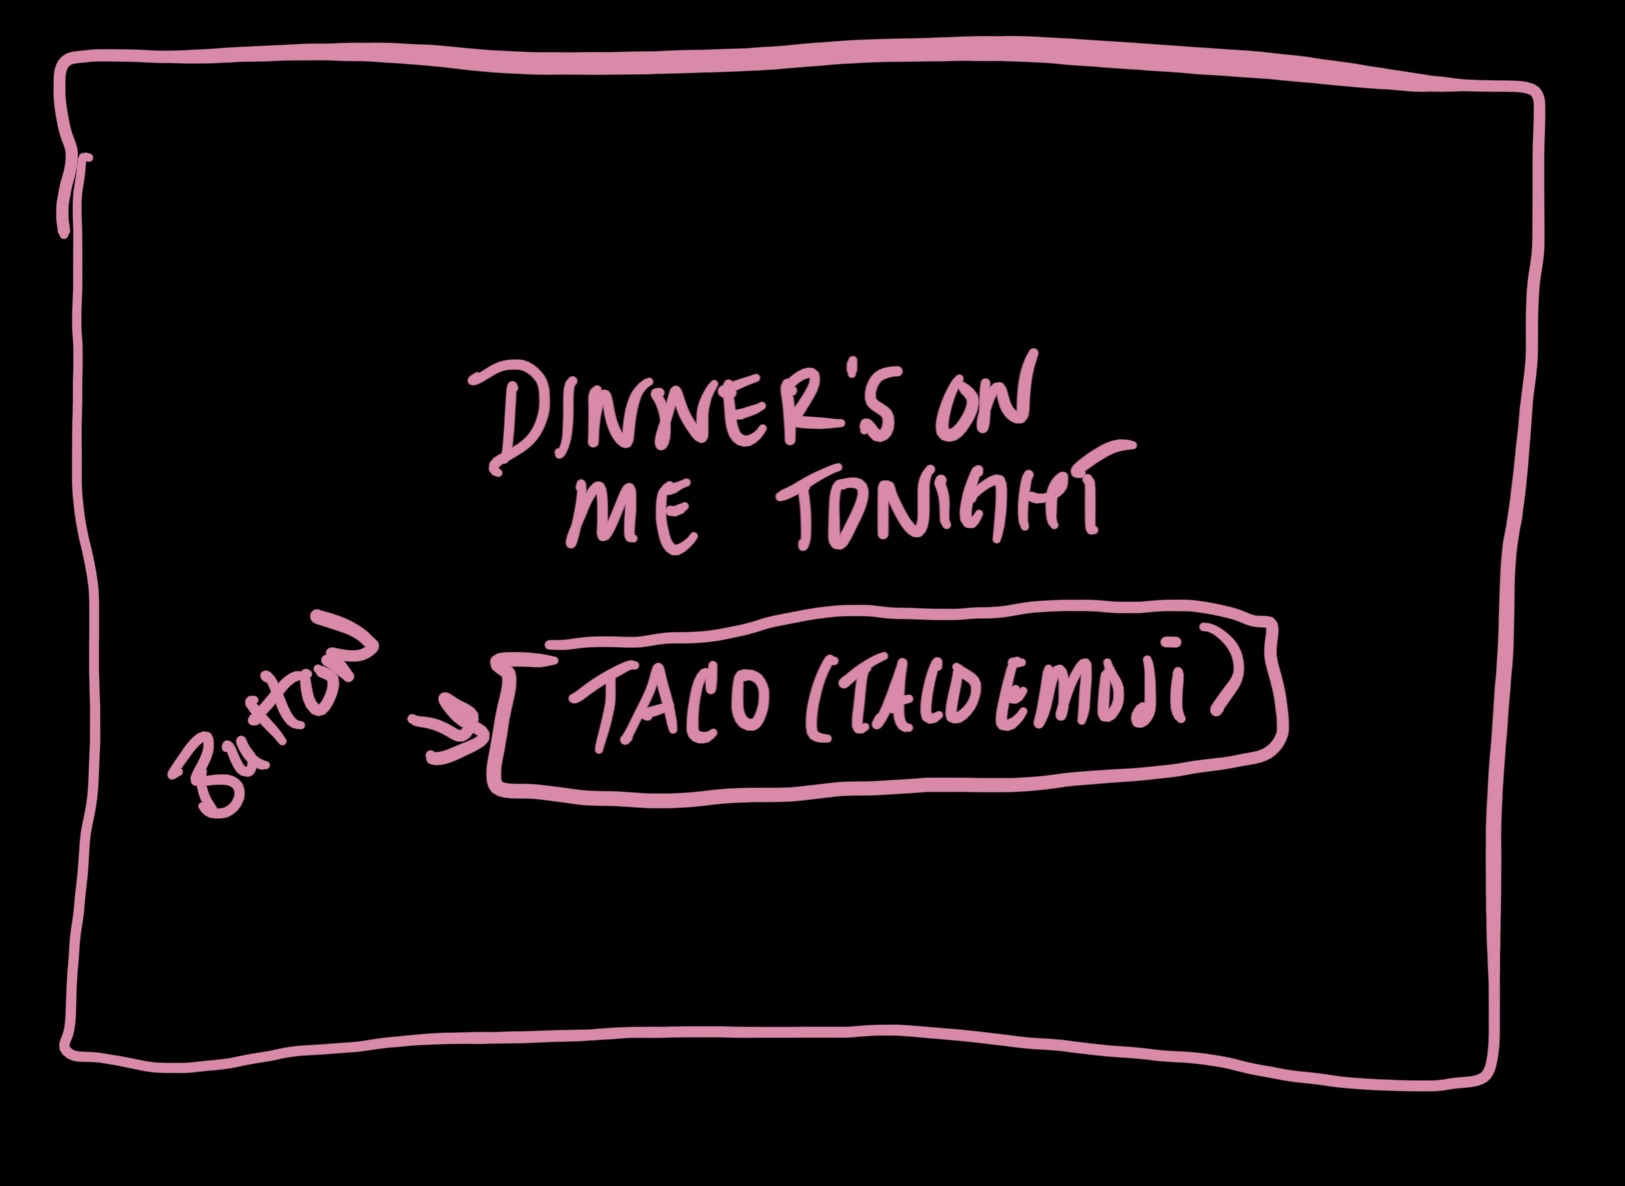 DINNER'S ON
ME TONIGHT
Button
TACO (TACO EMOJI)